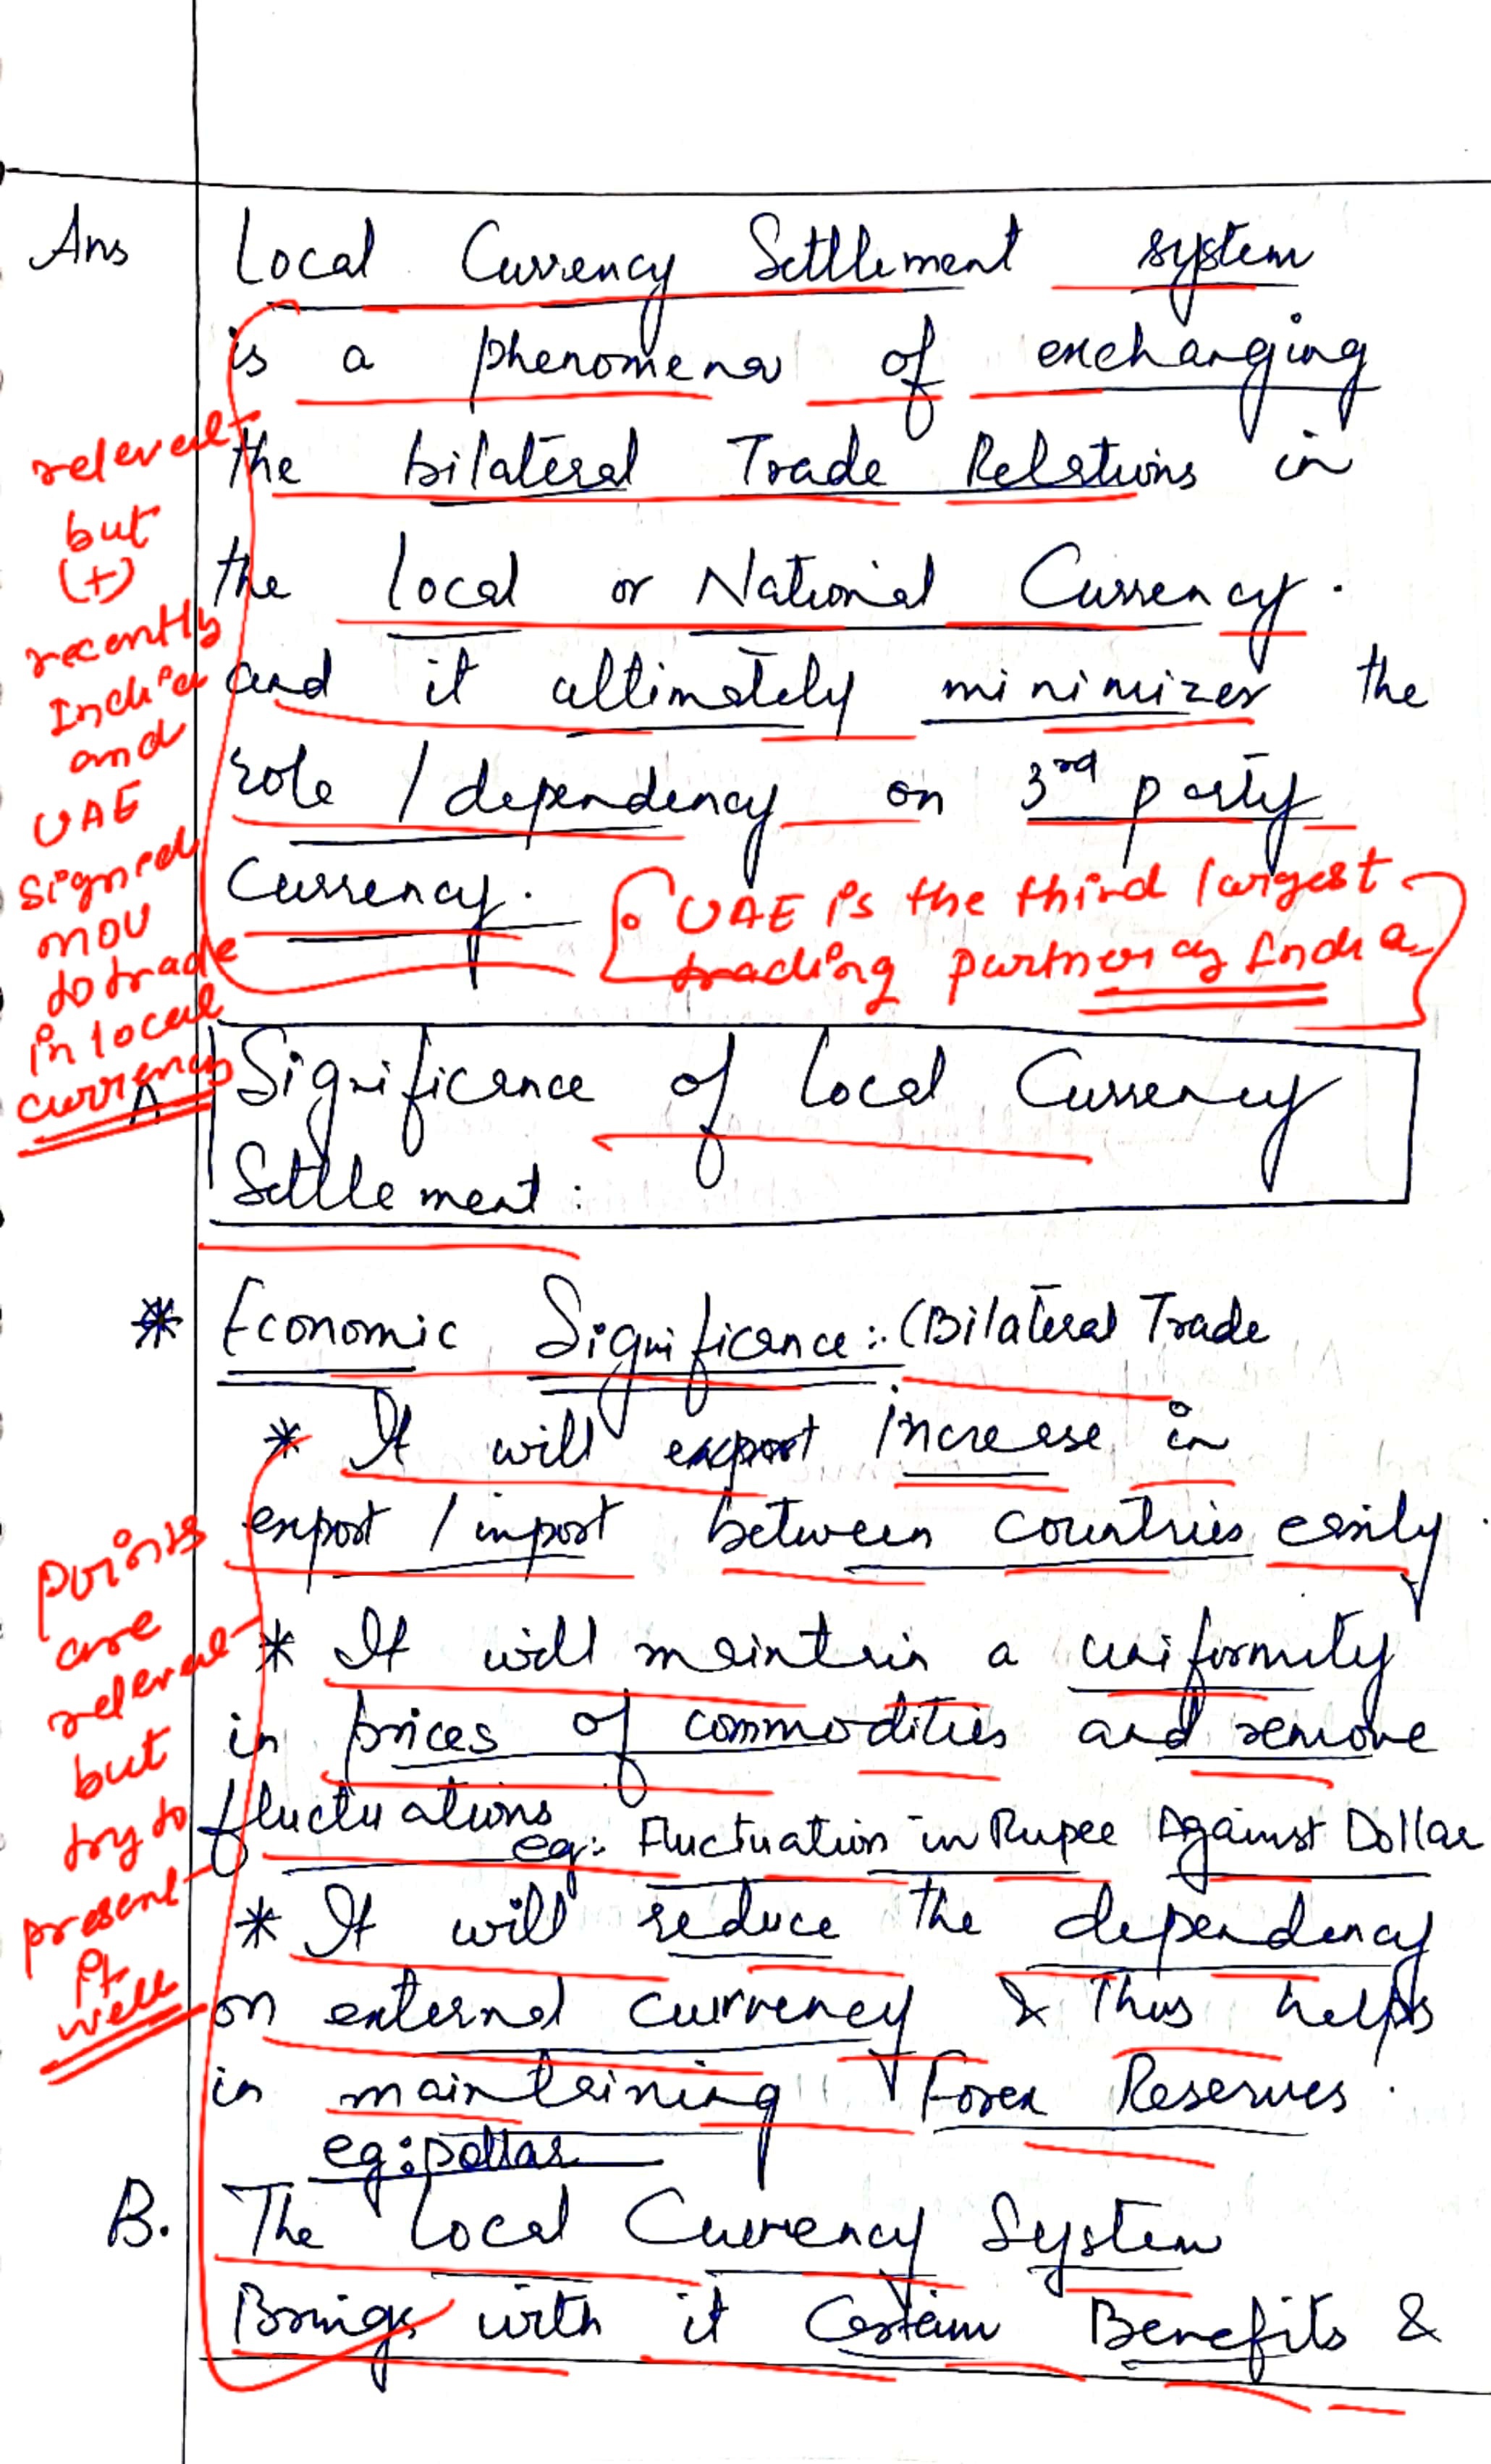 Ans
Local Currency Settlement system
is a phenomena of exchanging
the bilateral Trade Relations in
the local or National Currency.
and it ultimately minimizes the
role / dependency on 3rd party
Currency.
relevant
but
(+)
recently
India
and
UAE
signed
MOU
to trade
in local
currency
• UAE is the third largest
trading partner of India
A
Significance of Local Currency
Settlement :
* Economic Significance :- (Bilateral Trade
* It will export increase in
export / import between countries easily.
* It will maintain a uniformity
in prices of commodities and remove
fluctuations
eg: Fluctuation in Rupee Against Dollar
* It will reduce the dependency
on external currency & Thus helps
in maintaining Forex Reserves.
eg: Dollar
points
are
relevant
but
try to
present
it
well
B. The Local Currency System
Brings with it Certain Benefits &